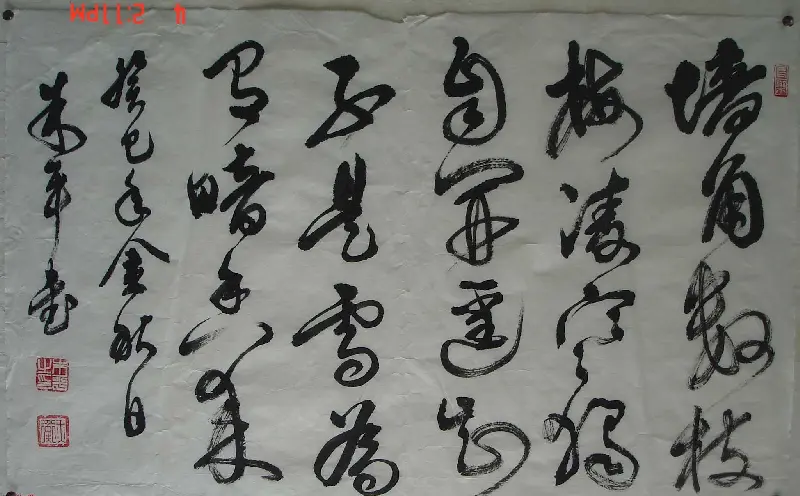 墙角数枝
梅凌寒独
自开遥知
不是雪为
有暗香来
癸巳年金秋日
朱书